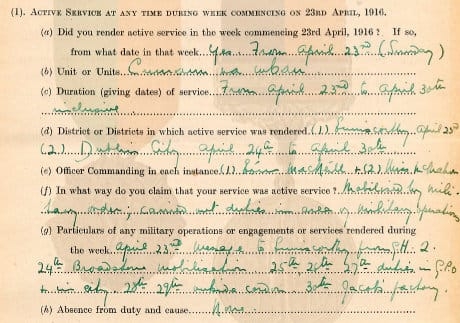 (1). ACTIVE SERVICE AT ANY TIME DURING WEEK COMMENCING ON 23RD APRIL, 1916.
(a) Did you render active service in the week commencing 23rd April, 1916? If so,
from what date in that week. Yes From April 23rd (Sunday)
(b) Unit or Units. Cumann na mBan
(c) Duration (giving dates) of service. From April 23rd to April 30th
inclusive
(d) District or Districts in which active service was rendered. (1) Enniscorthy April 23rd
(2) Dublin City April 24th to April 30th
(e) Officer Commanding in each instance (1) MacNeill + (2) Miss
(f) In what way do you claim that your service was active service? Mobilised by mili-
tary order; carried out duties in area of military operations
(g) Particulars of any military operations or engagements or services rendered during
the week. April 23rd Message to Enniscorthy from
24th Broadstone mobilisation 25th 26th 27th duties in G.P.O
+ in city 28th 29th outside cordon 30th Jacobs factory.
(h) Absence from duty and cause. None.